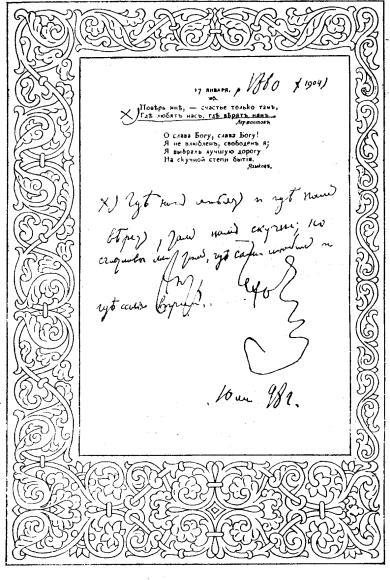 17 ЯНВАРЯ. р. 1860 († 1904)
X) Повѣрь мнѣ, — счастье только тамъ,
Гдѣ любятъ насъ, гдѣ вѣрятъ намъ.
Лермонтовъ.
О слава Богу, слава Богу!
Я не влюбленъ, свободенъ я;
Я выбралъ лучшую дорогу
На скучной степи бытія.
Языковъ.
X) Гдѣ нас любят и гдѣ нам
вѣрят, там нам скучно; но
счастливы мы там, гдѣ сами любим и
гдѣ сами вѣрим..
98 г.